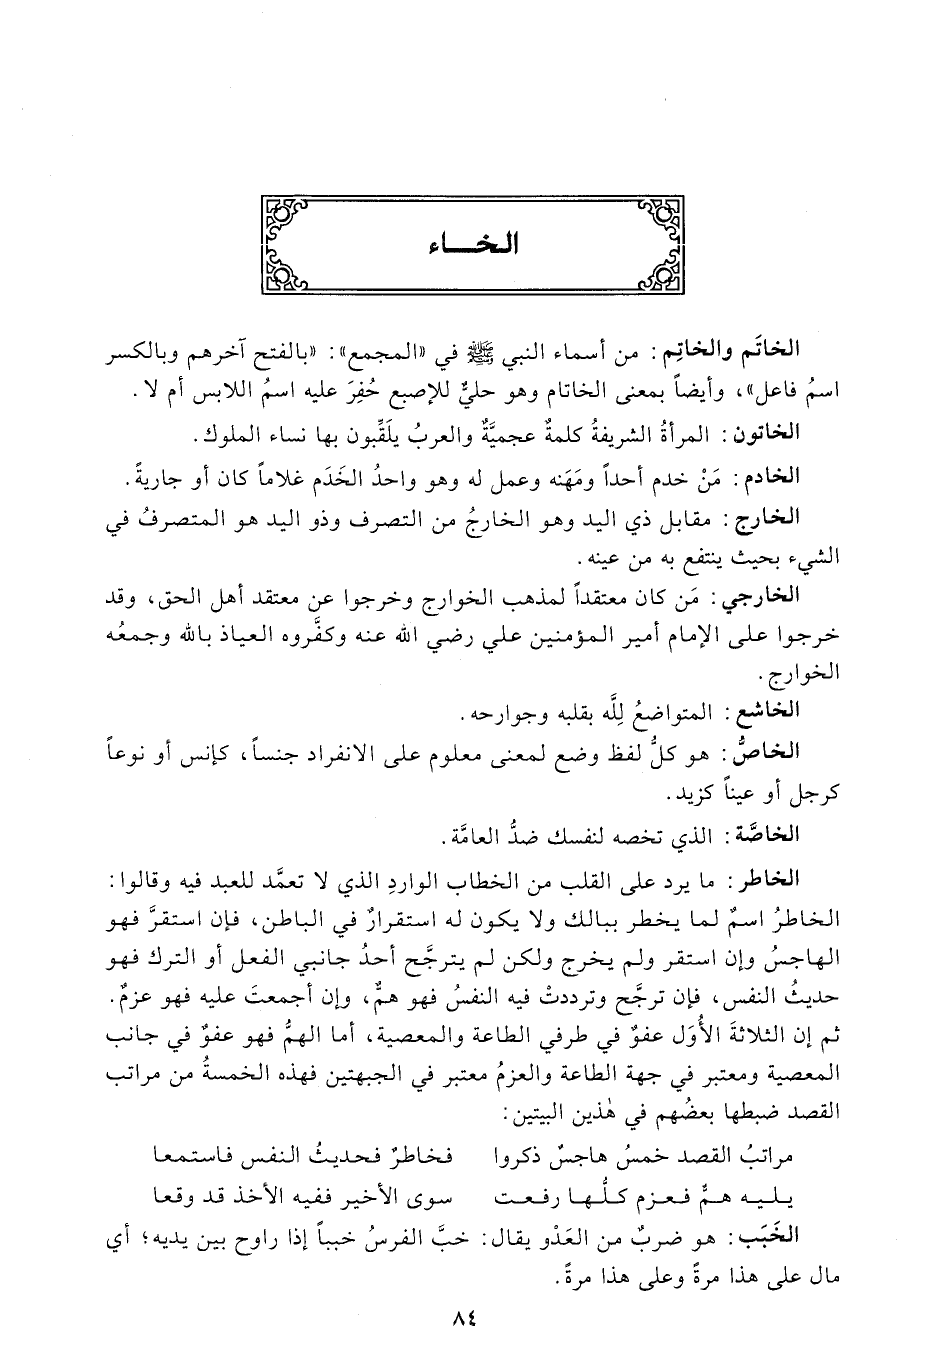 الخـــاء
الخاتَم والخاتِم: من أسماء النبي ﷺ في «المجمع»: «بالفتح آخرهم وبالكسر
اسمُ فاعل»، وأيضاً بمعنى الخاتام وهو حليٌّ للإصبع حُفِرَ عليه اسمُ اللابس أم لا.
الخاتون: المرأةُ الشريفةُ كلمةٌ عجميَّةٌ والعربُ يلَقِّبون بها نساء الملوك.
الخادم: مَنْ خدم أحداً ومَهَنه وعمل له وهو واحدُ الخَدَم غلاماً كان أو جاريةً.
الخارج: مقابل ذي اليد وهو الخارجُ من التصرف وذو اليد هو المتصرفُ في
الشيء بحيث ينتفع به من عينه.
الخارجي: مَن كان معتقداً لمذهب الخوارج وخرجوا عن معتقد أهل الحق، وقد
خرجوا على الإمام أمير المؤمنين علي رضي الله عنه وكفَّروه العياذ بالله وجمعُه
الخوارج.
الخاشع: المتواضعُ لِلَّه بقلبه وجوارحه.
الخاصُّ: هو كلُّ لفظ وضع لمعنى معلوم على الانفراد جنساً، كإنس أو نوعاً
كرجل أو عيناً كزيد.
الخاصَّة: الذي تخصه لنفسك ضدُّ العامَّة.
الخاطر: ما يرد على القلب من الخطاب الواردِ الذي لا تعمَّد للعبد فيه وقالوا:
الخاطرُ اسمٌ لما يخطر ببالك ولا يكون له استقرارٌ في الباطن، فإن استقرَّ فهو
الهاجسُ وإن استقر ولم يخرج ولكن لم يترجَّح أحدُ جانبي الفعل أو الترك فهو
حديثُ النفس، فإن ترجَّح وترددتْ فيه النفسُ فهو همٌّ، وإن أجمعتَ عليه فهو عزمٌ.
ثم إن الثلاثةَ الأُوَل عفوٌ في طرفي الطاعة والمعصية، أما الهمُّ فهو عفوٌ في جانب
المعصية ومعتبر في جهة الطاعة والعزمُ معتبر في الجبهتين فهذه الخمسةُ من مراتب
القصد ضبطها بعضُهم في هٰذين البيتين:
مراتبُ القصد خمسُ هاجسٌ ذكروا فخاطرٌ فحديثُ النفس فاستمعا
يليه همٌّ فعزم كلُّها رفعت سوى الأخير ففيه الأخذ قد وقعا
الخَبَب: هو ضربٌ من العَدْو يقال: خبَّ الفرسُ خبباً إذا راوح بين يديه؛ أي
مال على هذا مرةً وعلى هذا مرةً.
٨٤